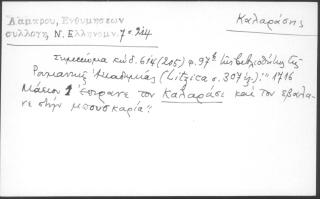 Λάμπρου, Ἐνθυμήσεων
συλλογή, Ν. Ἑλληνομν. 7 σ. 214
Καλαράσης
Σημείωμα κώδ. 614 (205) φ. 97β τῆς βιβλιοθήκης τῆς
Ρουμανικῆς Ἀκαδημίας (Litzica σ. 307 ἑξ.): "1716
Μάιον 1 ἔπιρανε τον Καλαράσι καὶ τον ἔβαλα-
νε στὴν μπουσκαρία".